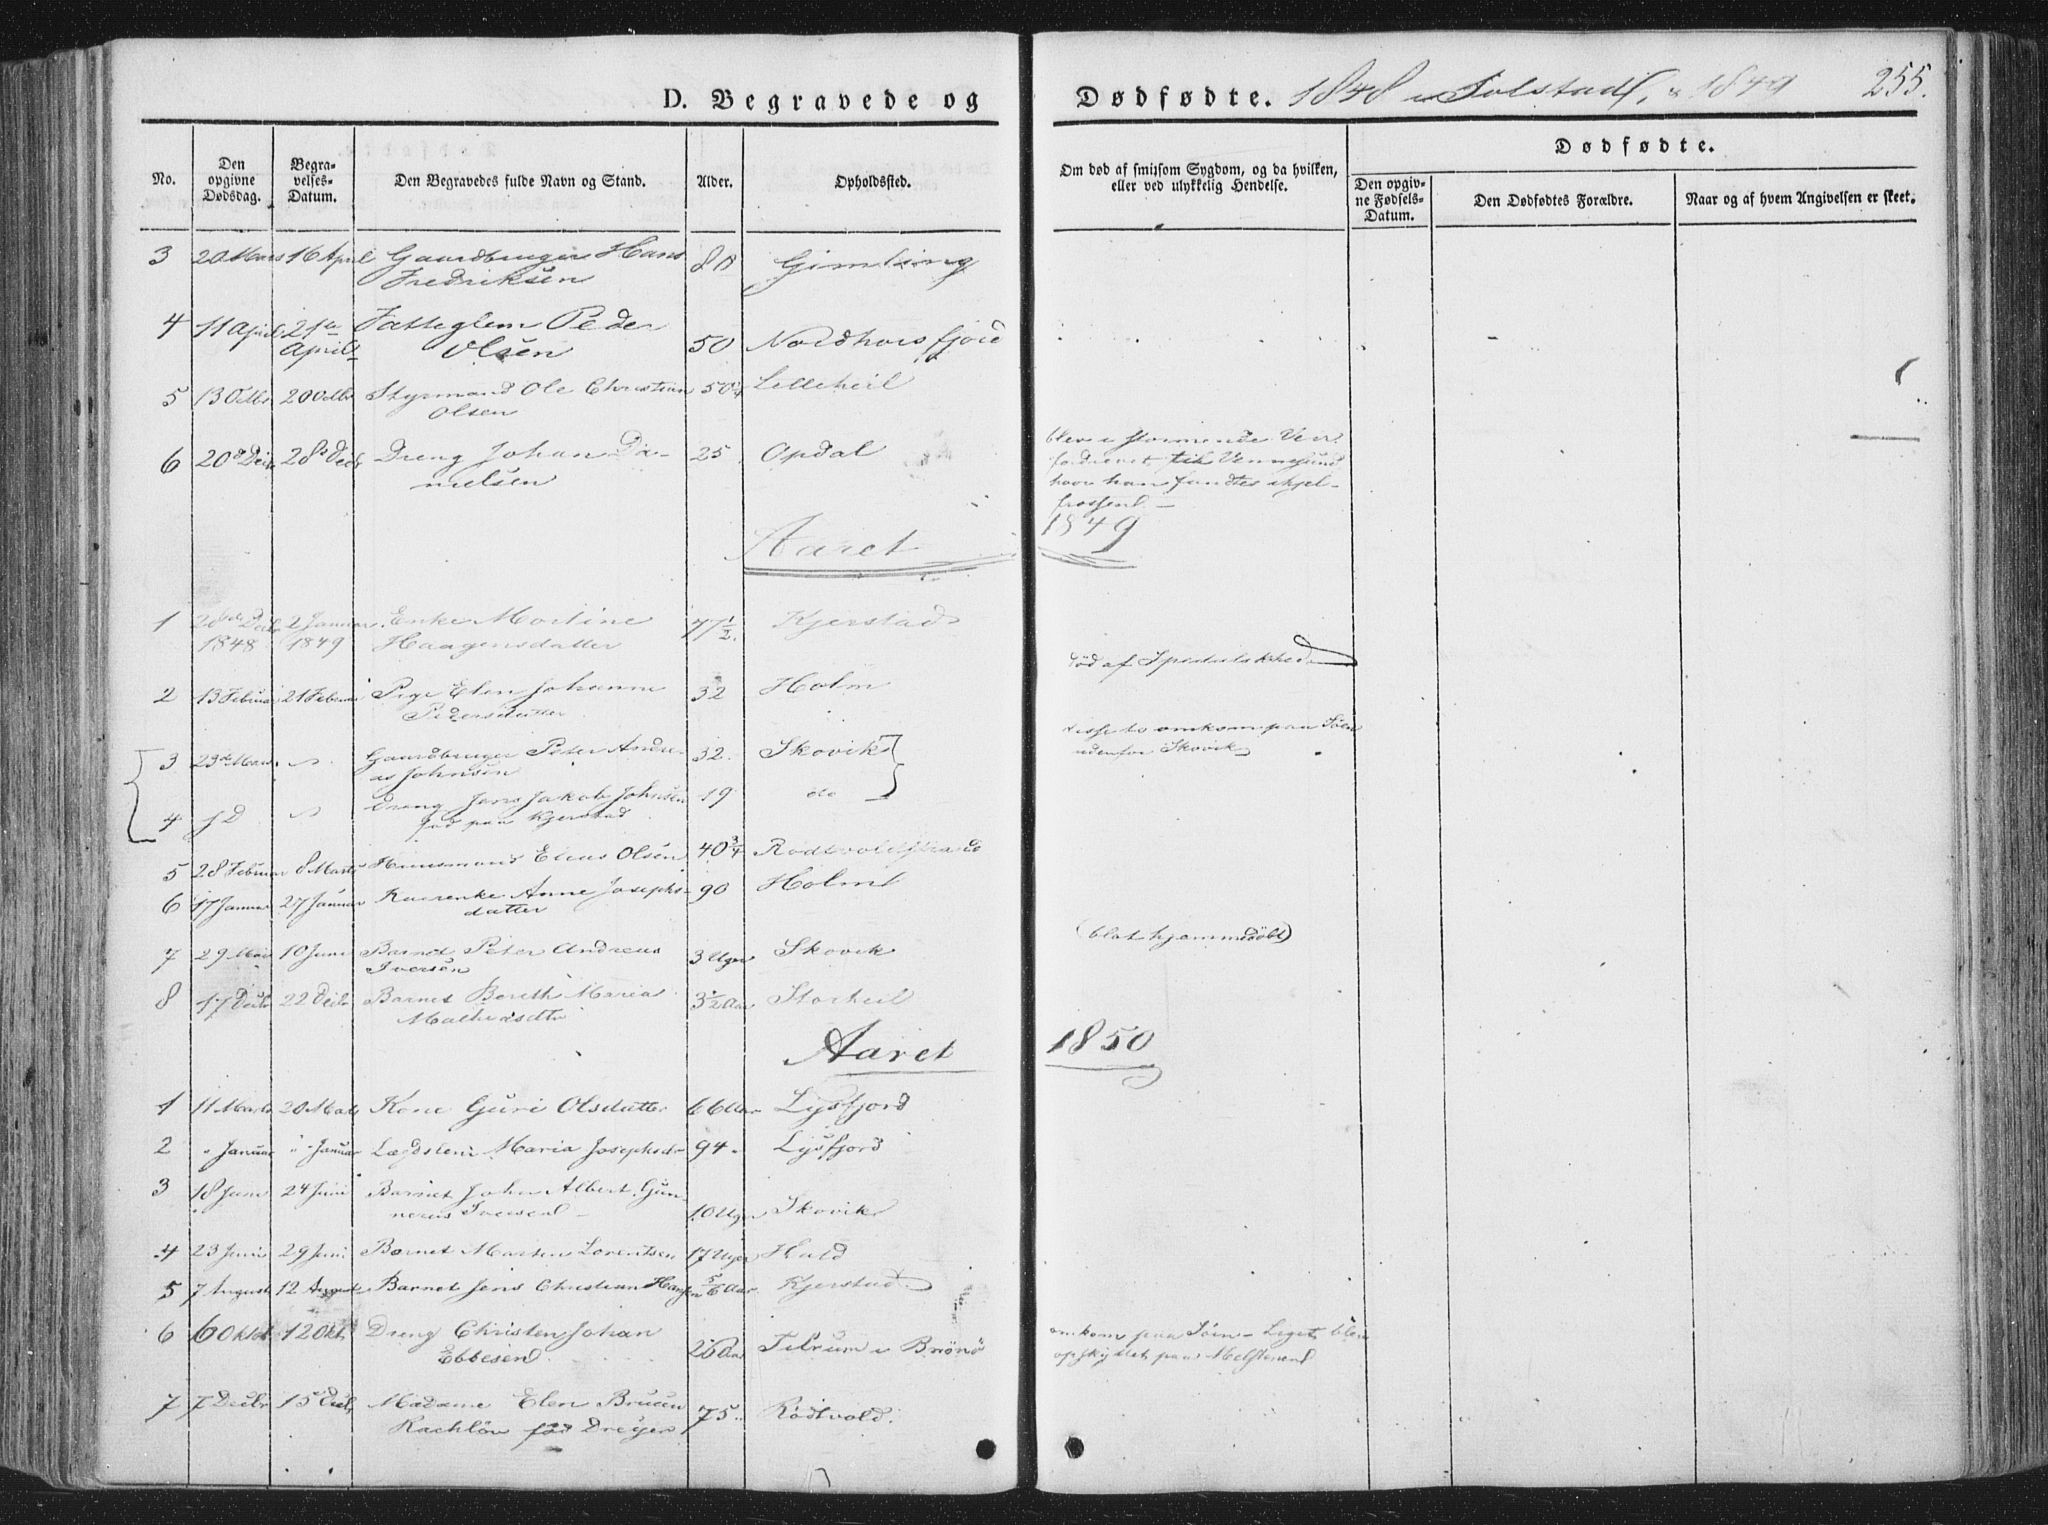 D. Begravede og Dødfødte. 1848 Solstad, 1849 255.
Dødfødte.
No.
Den opgivne Dødsdag.
Begravelses-Datum.
Den Begravedes fulde Navn og Stand.
Alder.
Opholdssted.
Om død af smitsom Sygdom, og da hvilken, eller ved ulykkelig Hendelse.
Den opgivne Fødsels-Datum.
Den Dødfødtes Forældre.
Naar og af hvem Angivelsen er skeet.
3 20 Mars 16 April Gaardbruger Hans 80 Gimling
Fredriksen
4 11 April 21de Peder
April Olsen 50 Nordhorsfjord
5 13 Octbr 20 Octbr Styrmand Ole Christian 50 Lilleheil
Olsen
6 20de Decbr 28de Decbr Dreng Johan Da- 25 Opdal blev i stormende Veir
nielsen til Vennesund
hvor han fandtes ihjel-
frossen
Aaret 1849
1 28de Decbr 2 Januar Enke Martine 77½ Kjerstad
1848 1849 Haagensdatter
død af Spedalskhed
2 13 Februar 21 Februar Pige Elen Johanne 32 Holm
Pedersdatter
disse to omkom paa Søen
3 23de Mars " Gaardbruger Peter Andre- 32 Skovik udenfor Skovik
as Johnsen
4 " Dreng Jens Jakob Johnsen 19 do
fød paa Kjerstad
5 28 Februar 8 Marts Huusmand Elias Olsen 40¾ Rødtvoldstrand
6 17 Januar 27 Januar Anne Josephs- 90 Holm
datter
(blot hjemmedøbt)
7 29 Mai 10 Juni Barnet Peter Andreas 3 Uger Skovik
Iversen
8 17 Decbr 22 Decbr Barnet Bereth Maria 3½ Aar Storheil
Aaret 1850
1 11 Marts 20 Marts Kone Guri Olsdatter 66 Aar Lysfjord
2 " Januar " Januar Maria Josephsdr 94 Lysfjord
3 18 Juni 24 Juni Barnet John Albert Gun-
nerius Iversen 10 Uger Skovik
4 23 Juni 29 Juni Barnet Morten Lorentsen 17 Uger Hald
5 7 August 12 August Barnet Jens Christian Hansen 5/6 Aar Kjerstad
6 6 Oktbr 12 Oktbr Dreng Christen Johan 26 Aar Tilrum i Brønø omkom paa Søen - Liget blev
Ebbesen opskyllet paa
7 7 Decbr 15 Decbr Madame Elen Bruun 75 Rødtvold
Rachløw fød Dreyer